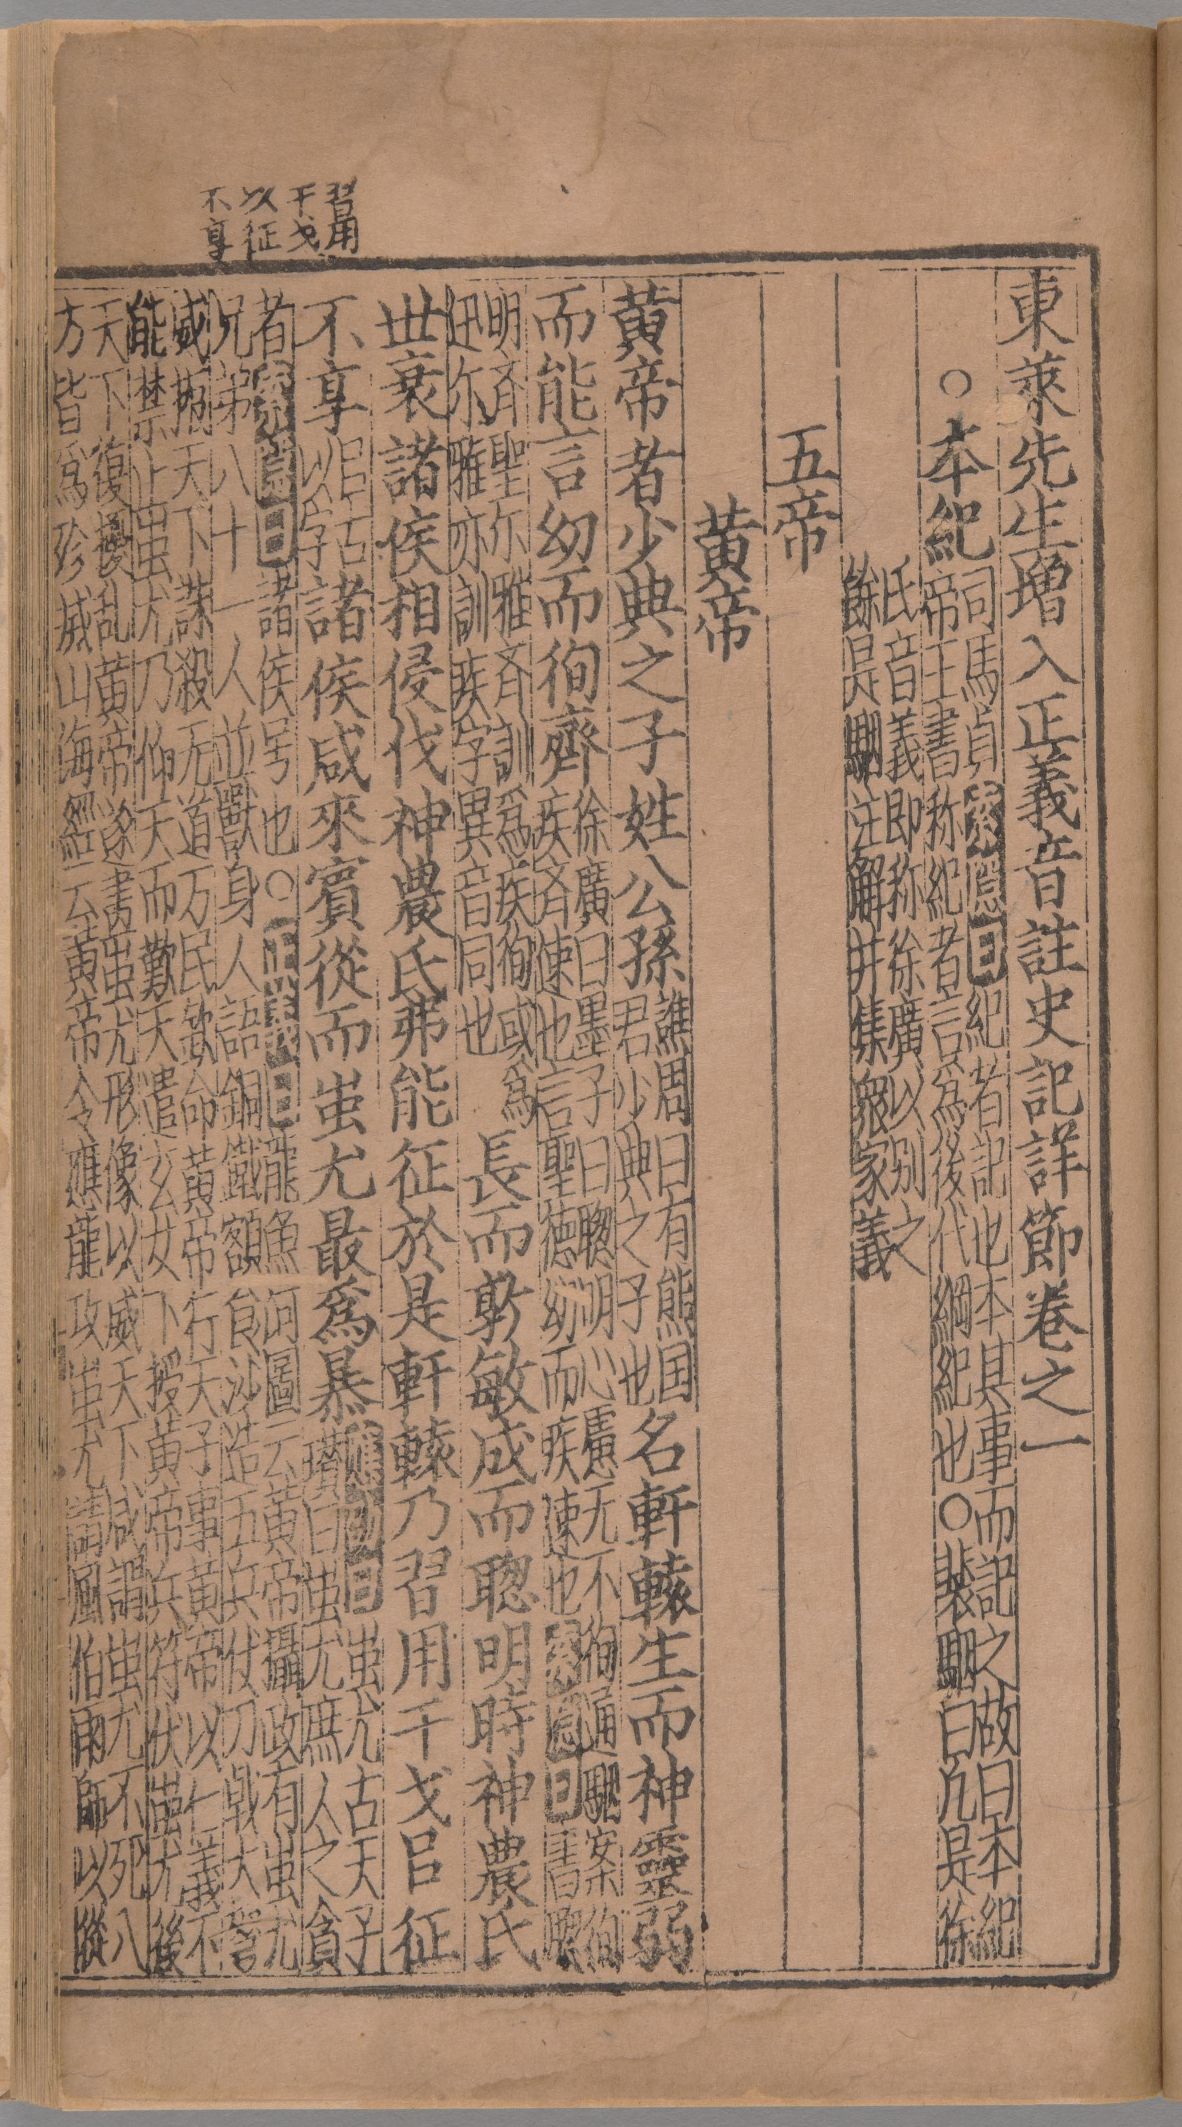 習用
干戈
以征
不享
東萊先生增入正義音註史記詳節卷之一
○本紀
司馬貞索隱曰紀者記也本其事而記之故曰本紀
帝王書称紀者言爲後代綱紀也○裴駰曰凡是徐
氏音義即称徐廣以别之
餘是駰注解并集衆家義
五帝
黃帝
黃帝者少典之子姓公孫
譙周曰有熊国
君少典之子也
名軒轅生而神靈弱
而能言幼而徇齊
徐廣曰墨子曰聦明心慮无不徇通駰案徇
疾齐速也言聖德幼而疾速也索隱曰書
明齐聖尔雅齐訓爲疾徇或爲
迅尔雅亦訓疾字異音同也
長而敦敏成而聦明時神農氏
世衰諸侯相侵伐神農氏弗能征於是軒轅乃習用干戈㠯征
不享
㠯古
以字
諸侯咸來賓從而蚩尤最爲暴
應劭曰蚩尤古天子
瓚曰蚩尤庶人之貪
者索隱曰諸侯号也○正義曰龍魚河圖云黃帝攝政有蚩尤
兄弟八十一人並獸身人語銅鐵額食沙造五兵仗刀戟大弩
威振天下誅殺无道万民欽命黃帝行天子事黃帝以仁義不
能禁止蚩尤乃仰天而歎天遣玄女下授黃帝兵符伏蚩尤後
天下復擾乱黃帝遂畫蚩尤形像以威天下咸謂蚩尤不死八
方皆爲殄威山海經云黃帝令應龍攻蚩尤請風伯雨師以從